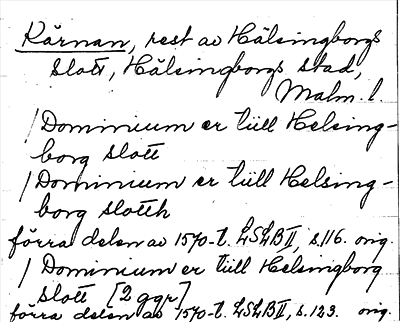 Kärnan, rest av Hälsingborgs
slott, Hälsingborgs stad,
Malm. l.
/ Dominium er tiill Helsing-
borg slott
/ Dominium er tiill Helsing-
borg slotth
förra delen av 1570-t. LSLB II, s. 116. orig.
/ Dominium er tiill Helsingborg
slott [2 ggr]
förra delen av 1570-t. LSLB II, s. 123. orig.